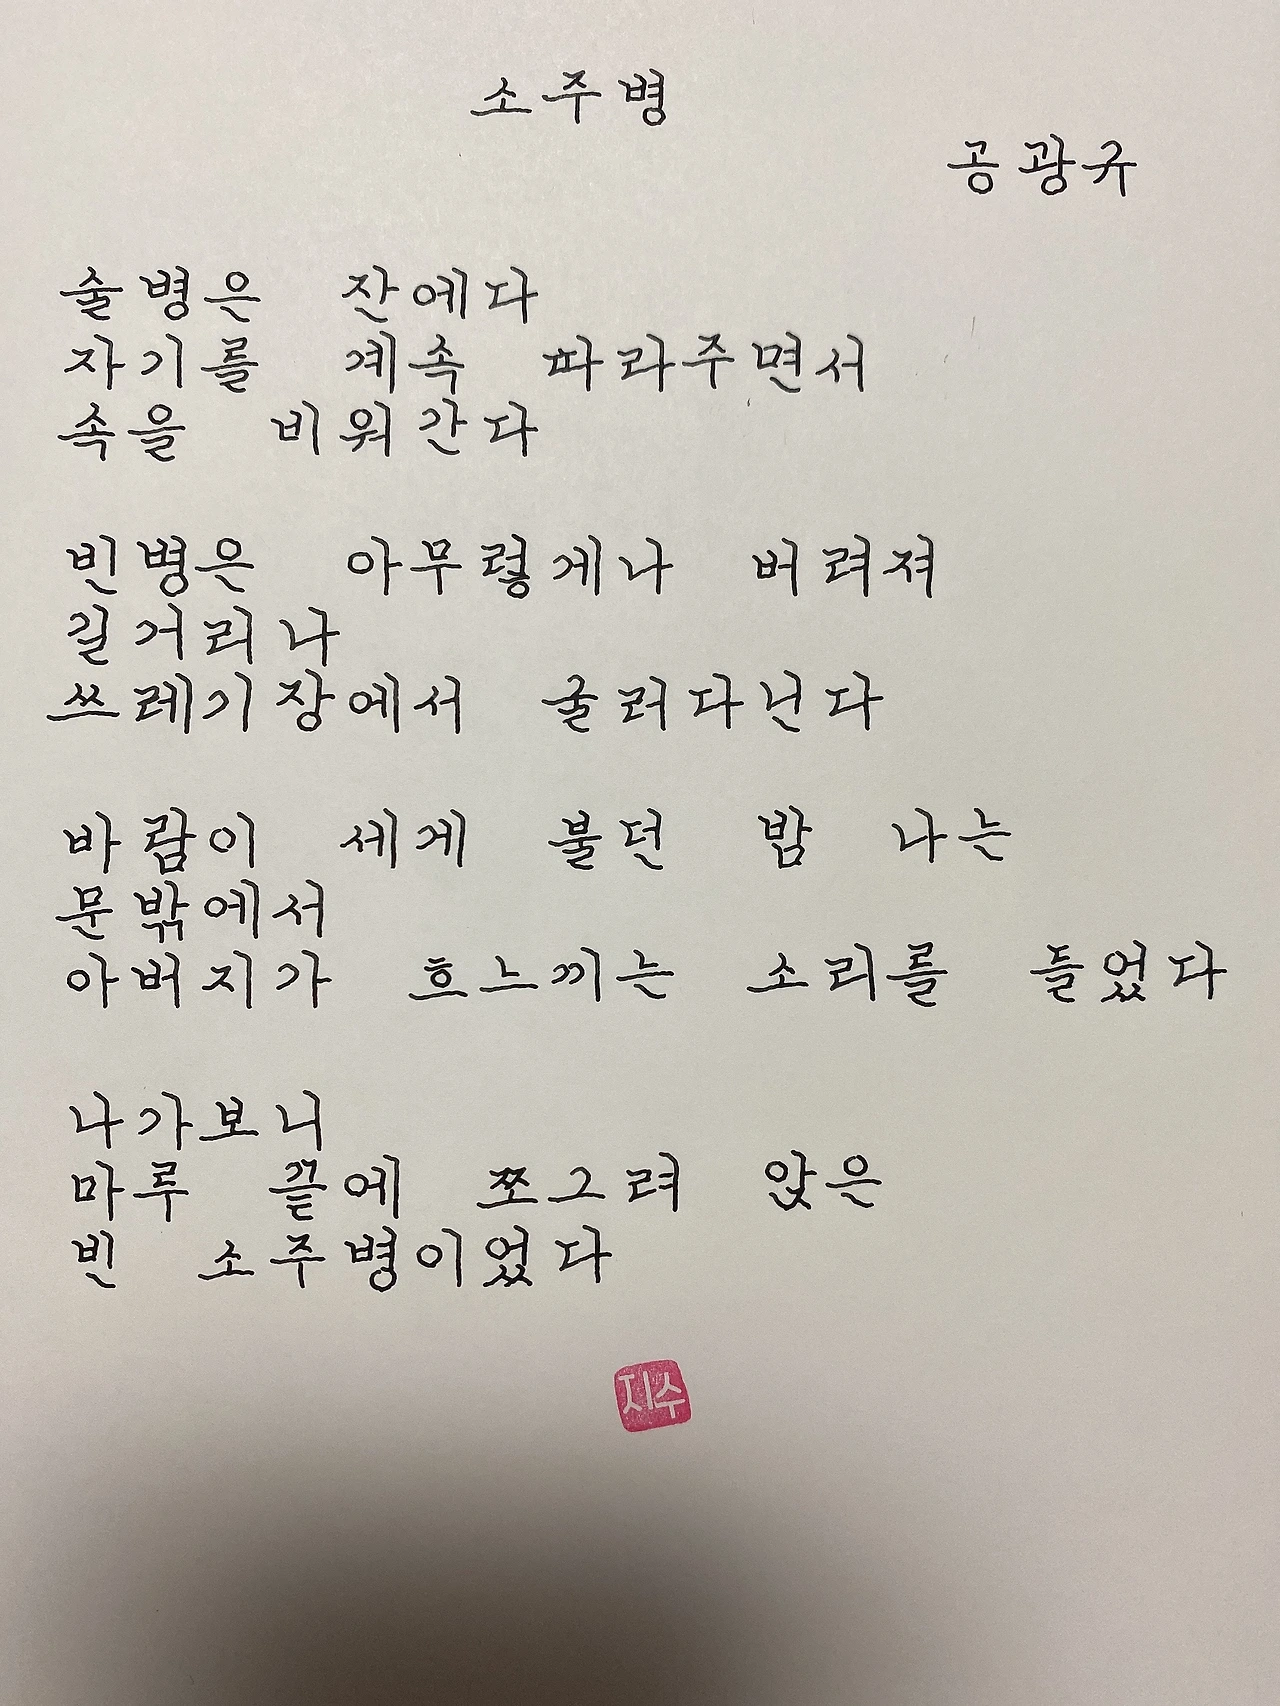 소주병
공광규
술병은 잔에다
자기를 계속 따라주면서
속을 비워간다
빈병은 아무렇게나 버려져
길거리나
쓰레기장에서 굴러다닌다
바람이 세게 불던 밤 나는
문밖에서
아버지가 흐느끼는 소리를 들었다
나가보니
마루 끝에 쪼그려 앉은
빈 소주병이었다
지수